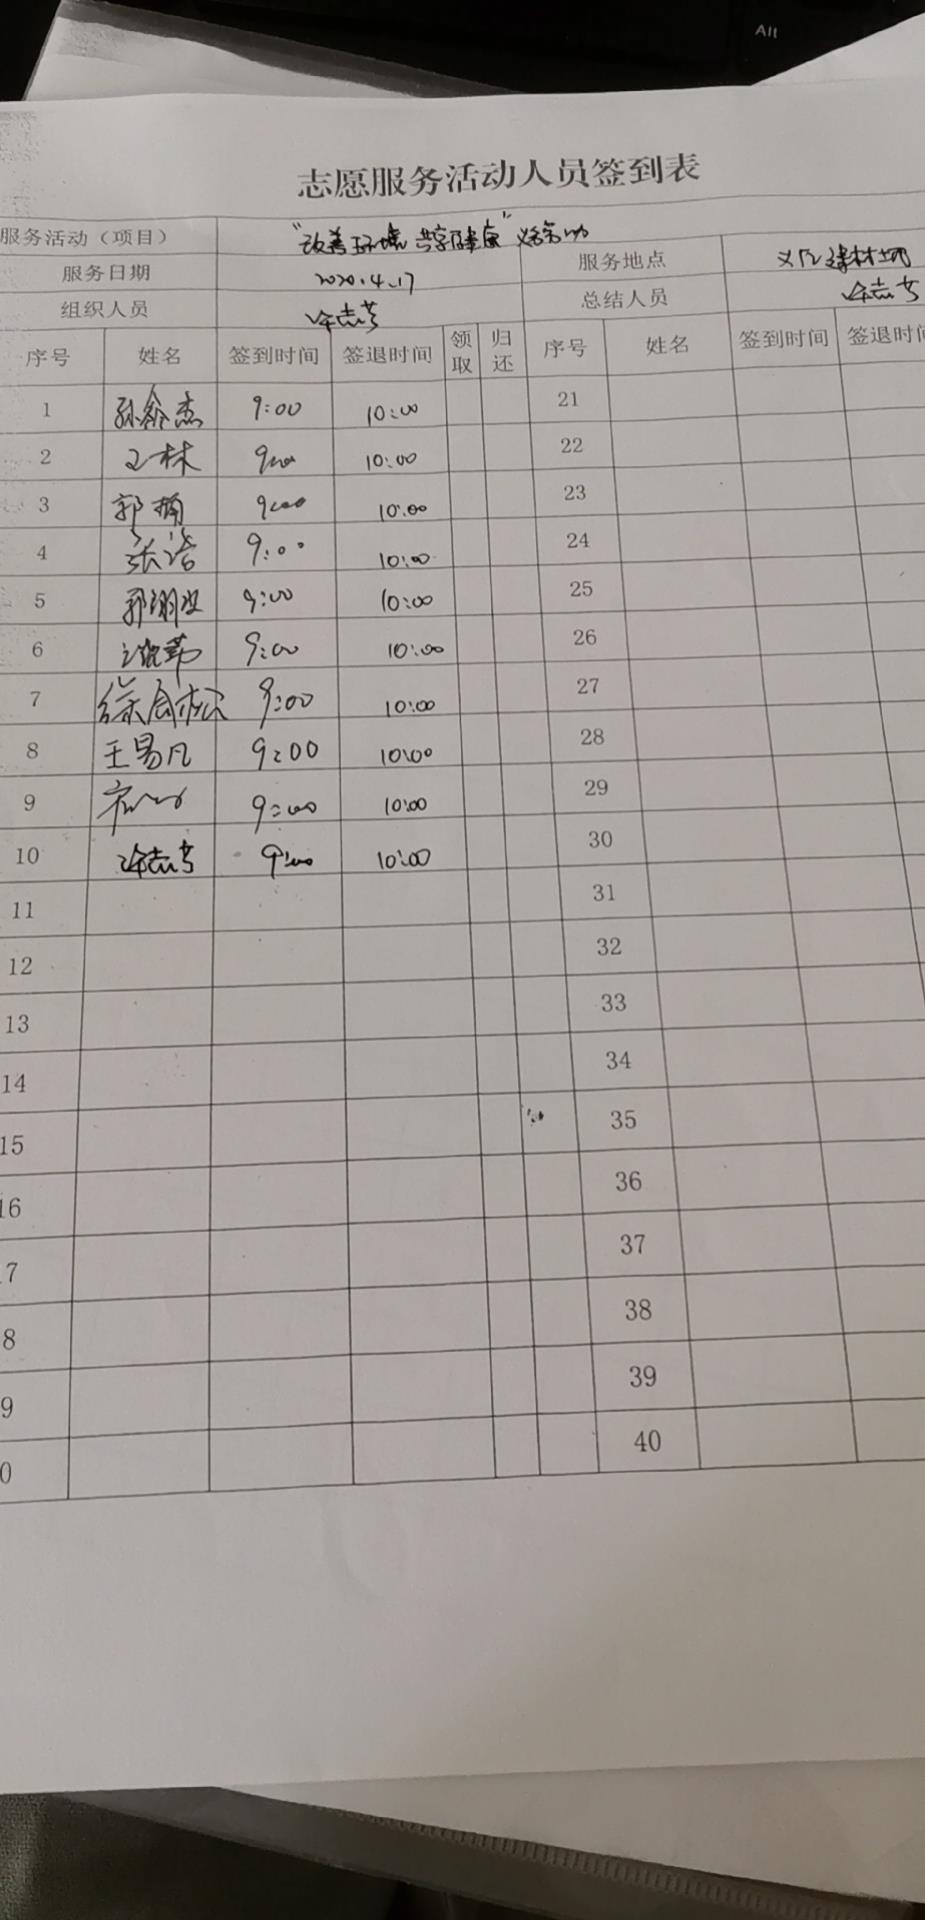 Alt
志愿服务活动人员签到表
服务活动（项目） "改善环境 共享健康"
服务日期 2020.4.17 服务地点
组织人员 总结人员
序号 姓名 签到时间 签退时间 领取 归还 序号 姓名 签到时间 签退时
1 孙鑫杰 9:00 10:00 21
2 王林 9:00 10:00 22
3 郭楠 9:00 10:00 23
4 张浩 9:00 10:00 24
5 9:00 10:00 25
6 9:00 10:00 26
7 徐周松 9:00 10:00 27
8 王易凡 9:00 10:00 28
9 9:00 10:00 29
10 9:00 10:00 30
11 31
12 32
13 33
14 34
15 35
16 36
7 37
8 38
9 39
0 40